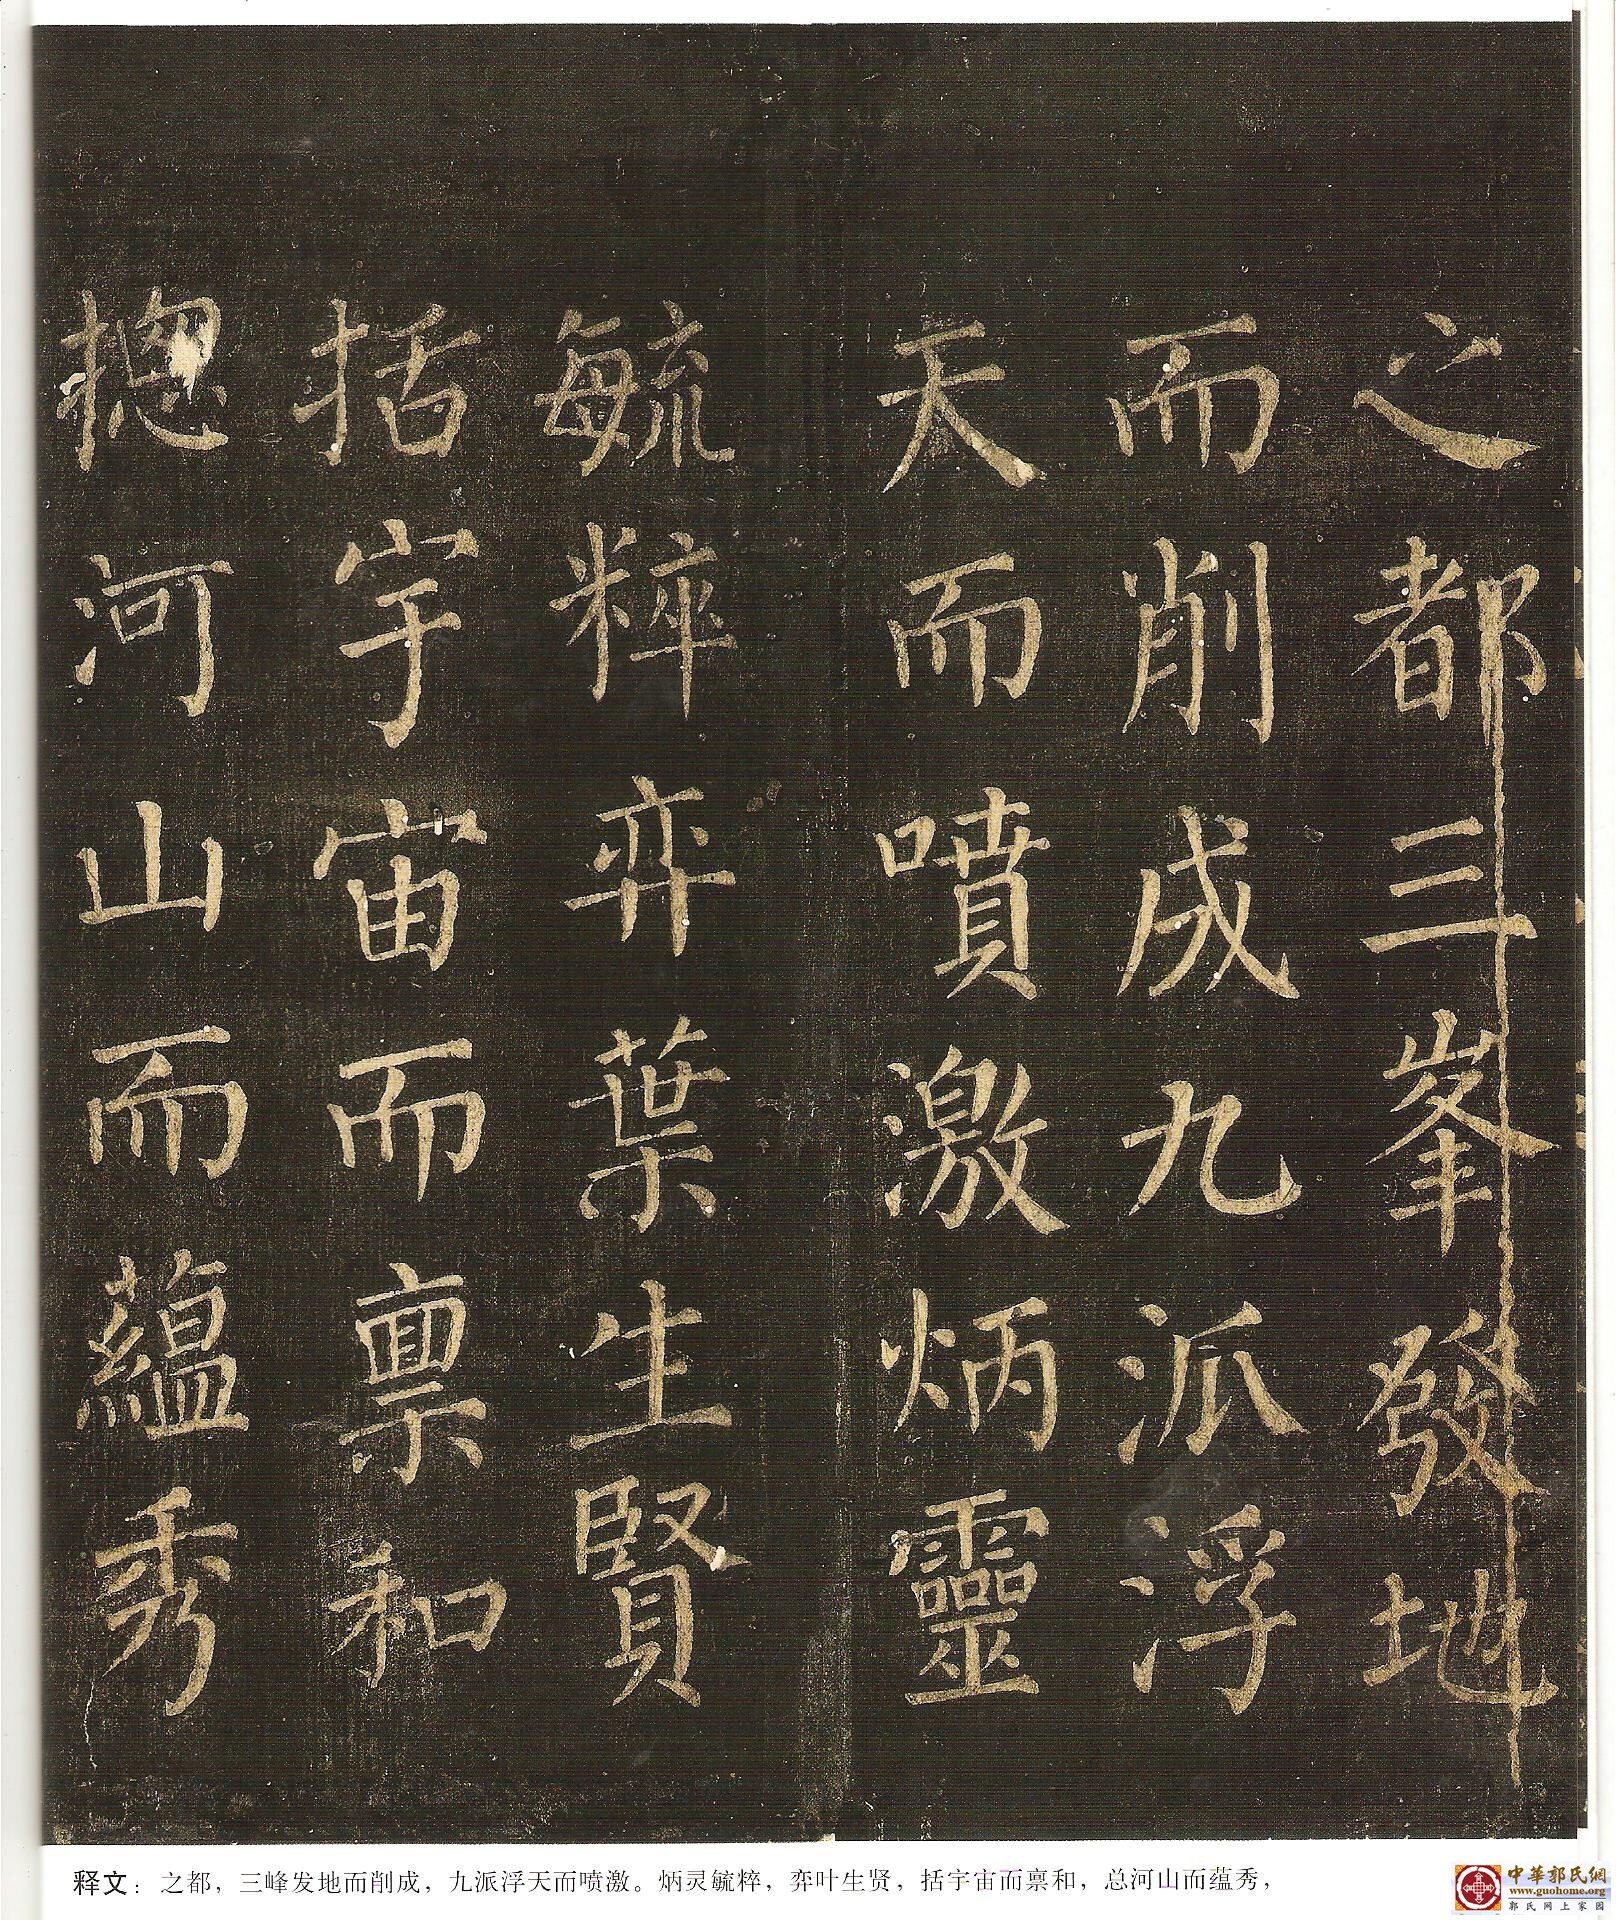 之都三峯發地
而削成九派浮
天而噴激炳靈
毓粹弈葉生賢
括宇宙而稟和
揔河山而蘊秀
释文：之都，三峰发地而削成，九派浮天而喷激。炳灵毓粹，弈叶生贤，括宇宙而禀和，总河山而蕴秀，
中華郭氏網
www.guohome.org
郭氏网上家园